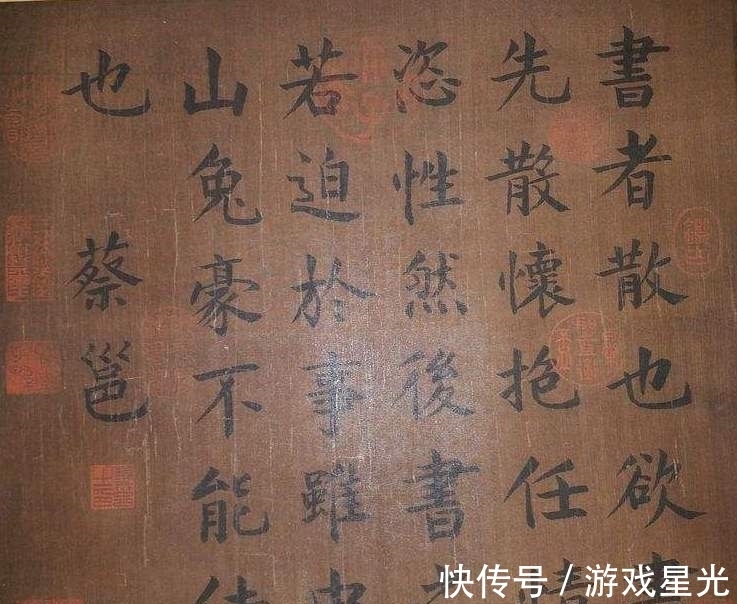 書者散也欲
先散懷抱任
恣性然後書
若迫於事雖
山兔豪不能
也 蔡邕
快传号 / 游戏星光